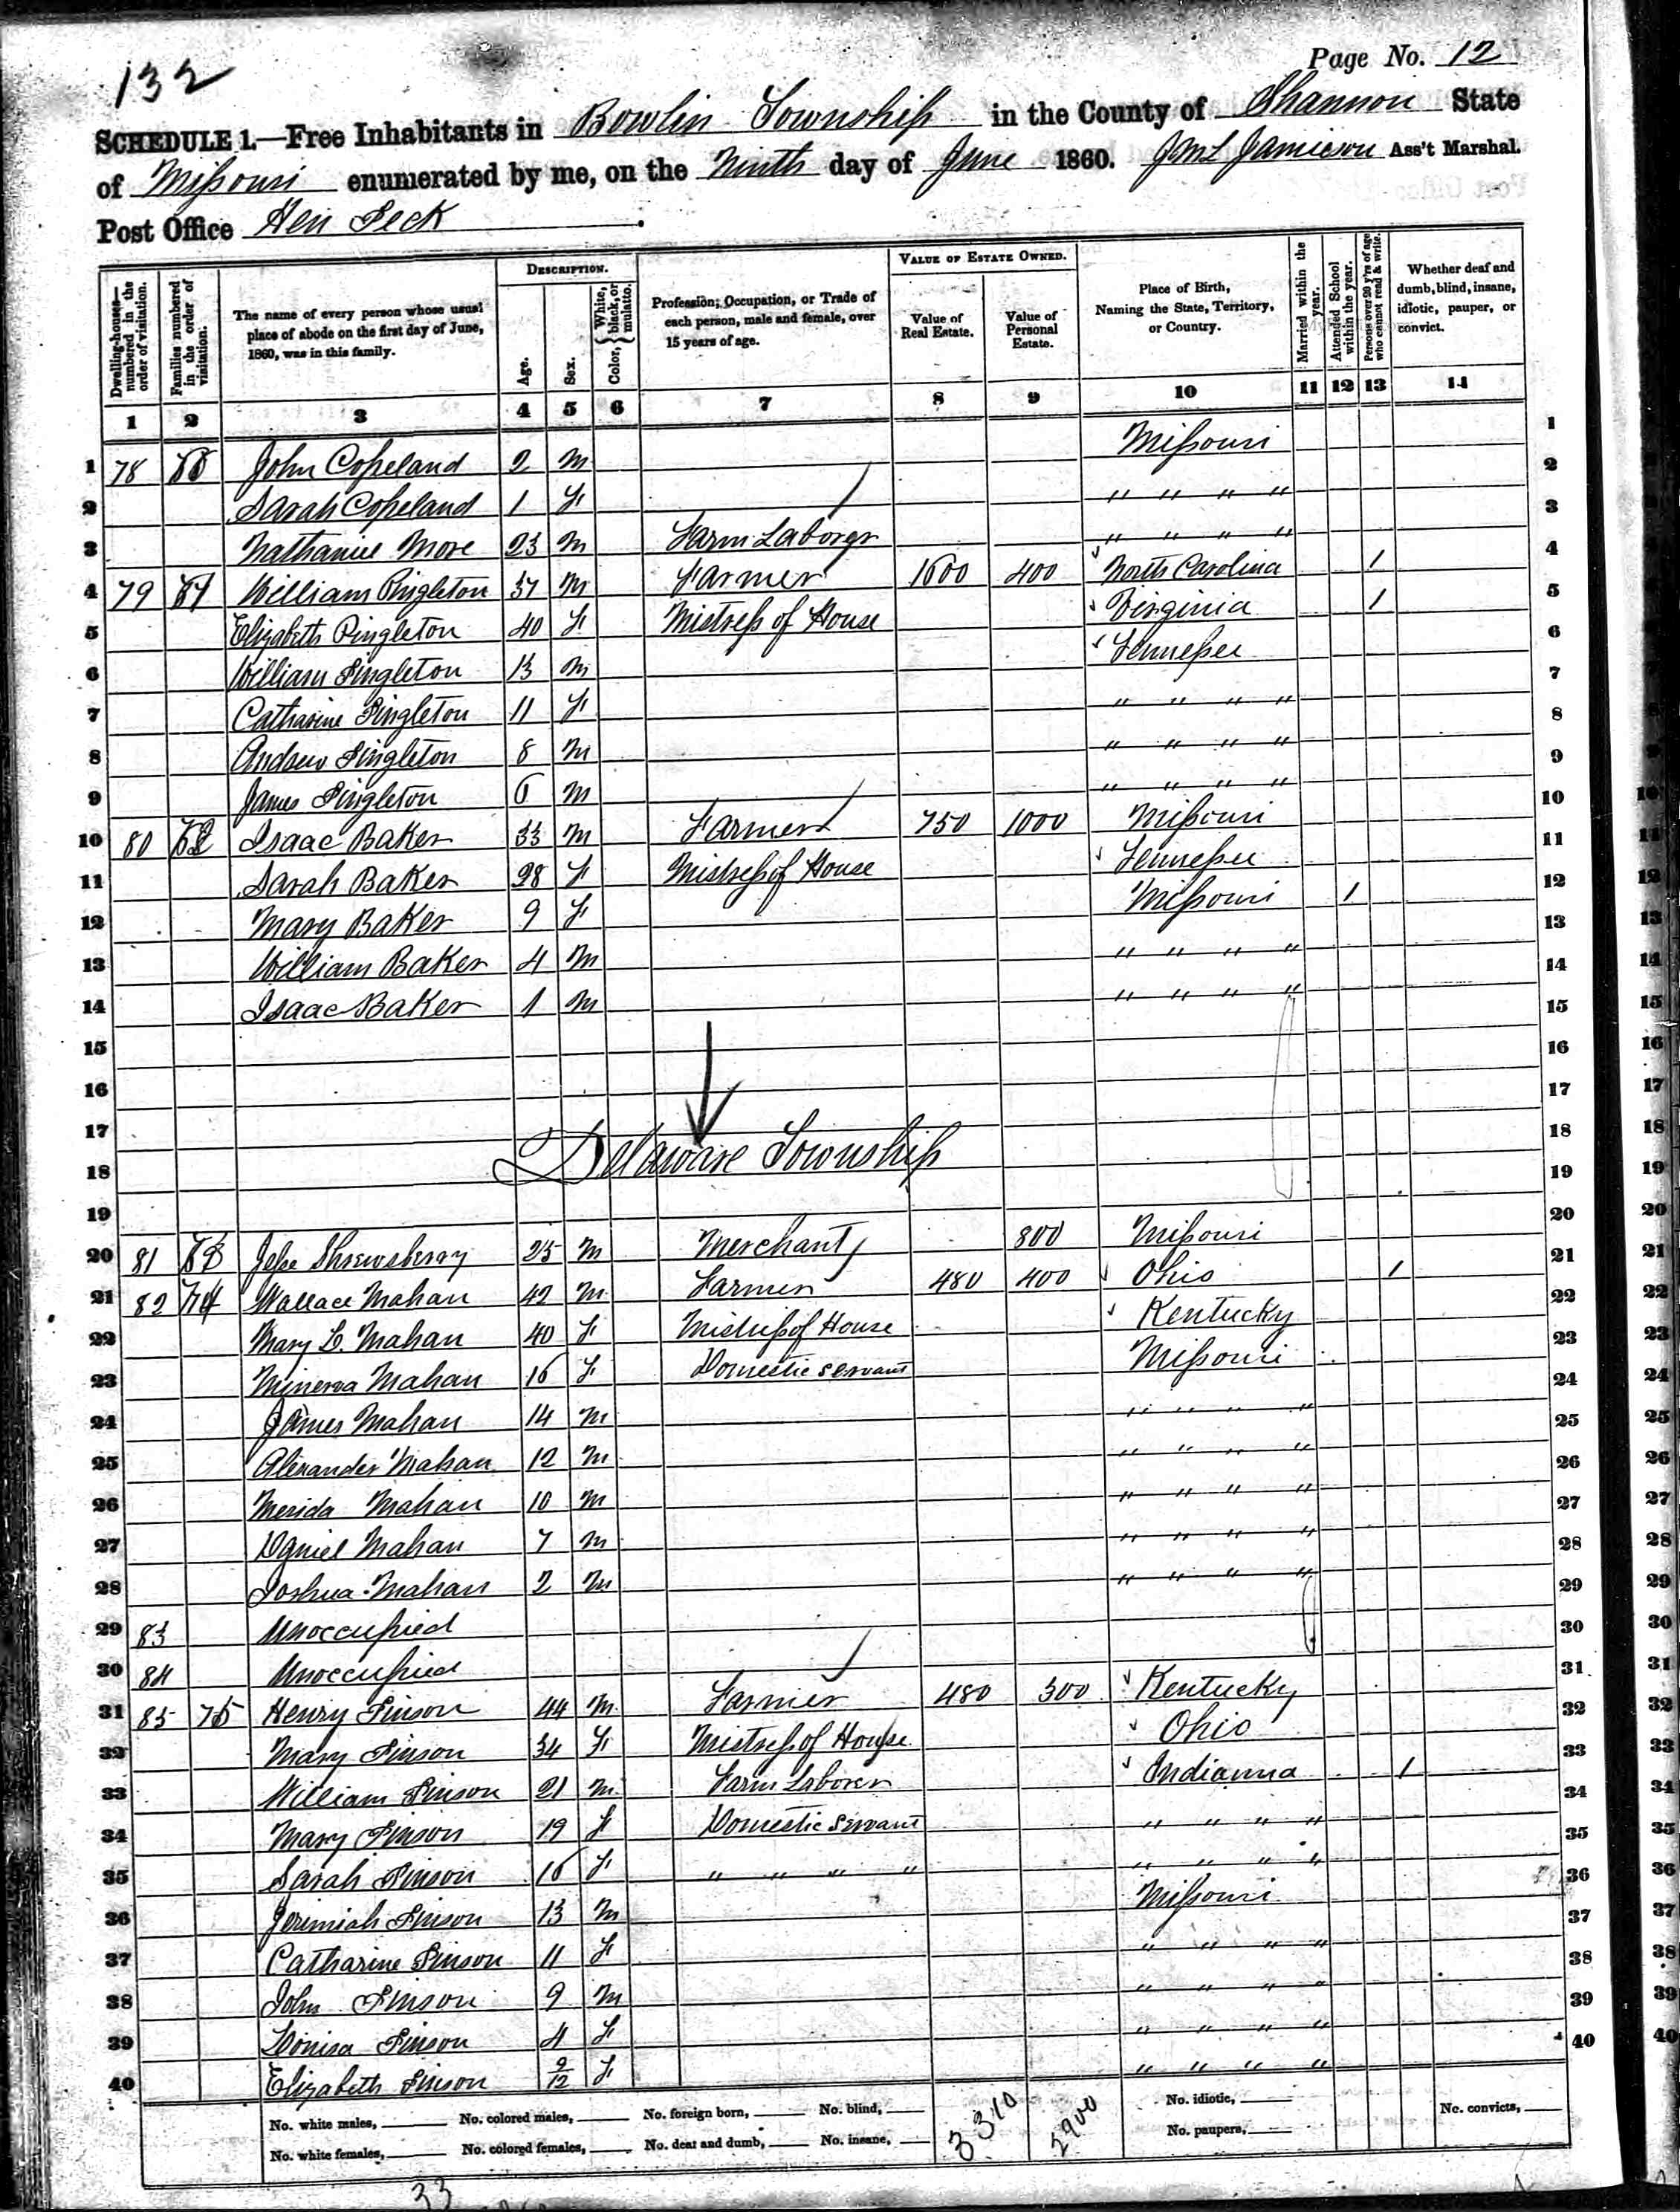 132
Page No. 12
SCHEDULE 1.—Free Inhabitants in Bowlin Township in the County of Shannon State
of Missouri enumerated by me, on the Ninth day of June 1860. J M L Jamieson Ass't Marshal.
Post Office Hen Peck.
Dwelling-houses numbered in the order of visitation.
Families numbered in the order of visitation.
The name of every person whose usual place of abode on the first day of June, 1860, was in this family.
DESCRIPTION.
Age.
Sex.
Color, White, black, or mulatto.
Profession, Occupation, or Trade of each person, male and female, over 15 years of age.
VALUE OF ESTATE OWNED.
Value of Real Estate.
Value of Personal Estate.
Place of Birth, Naming the State, Territory, or Country.
Married within the year.
Attended School within the year.
Persons over 20 y'rs of age who cannot read & write.
Whether deaf and dumb, blind, insane, idiotic, pauper, or convict.
1 2 3 4 5 6 7 8 9 10 11 12 13 14
1 78 John Copeland 2 M Missouri 1
2 Sarah Copeland 1 F " " " " 2
3 Nathaniel More 23 M Farm Laborer " " " " 3
4 79 William Pingleton 37 M Farmer 1600 400 North Carolina 1 4
5 Elizabeth Pingleton 40 F Mistress of House Virginia 1 5
6 William Pingleton 13 M Tennessee 6
7 Catharine Pingleton 11 F " " " " 7
8 Andrew Pingleton 8 M " " " " 8
9 James Pingleton 6 M " " " " 9
10 80 Isaac Baker 33 M Farmer 750 1000 Missouri 10
11 Sarah Baker 28 F Mistress of House Tennessee 11
12 Mary Baker 9 F Missouri 1 12
13 William Baker 4 M " " " " 13
14 Isaac Baker 1 M " " " " 14
15 15
16 16
17 17
Delaware Township
18 18
19 19
20 81 Jesse Shrewsberry 25 M Merchant 800 Missouri 20
21 82 74 Wallace Mahan 42 M Farmer 480 400 Ohio 1 21
22 Mary E. Mahan 40 F Mistress of House Kentucky 22
23 Minerva Mahan 16 F Domestic Servant Missouri 23
24 James Mahan 14 M " " " " 24
25 Alexander Mahan 12 M " " " " 25
26 Merida Mahan 10 M " " " " 26
27 Daniel Mahan 7 M " " " " 27
28 Joshua Mahan 2 M " " " " 28
29 83 Unoccupied 29
30 84 Unoccupied 30
31 85 75 Henry Pinson 44 M Farmer 480 300 Kentucky 31
32 Mary Pinson 34 F Mistress of House Ohio 32
33 William Pinson 21 M Farm Laborer Indianna 1 33
34 Mary Pinson 19 F Domestic Servant " " " " 34
35 Sarah Pinson 16 F " " " " " " " " 35
36 Jerimiah Pinson 13 M Missouri 36
37 Catharine Pinson 11 F " " " " 37
38 John Pinson 9 M " " " " 38
39 Louisa Pinson 4 F " " " " 39
40 Elizabeth Pinson 9/12 F " " " " 40
No. white males, No. colored males, No. foreign born, No. blind, 3310 2900 No. idiotic, No. convicts,
No. white females, No. colored females, No. deaf and dumb, No. insane, No. paupers,
33